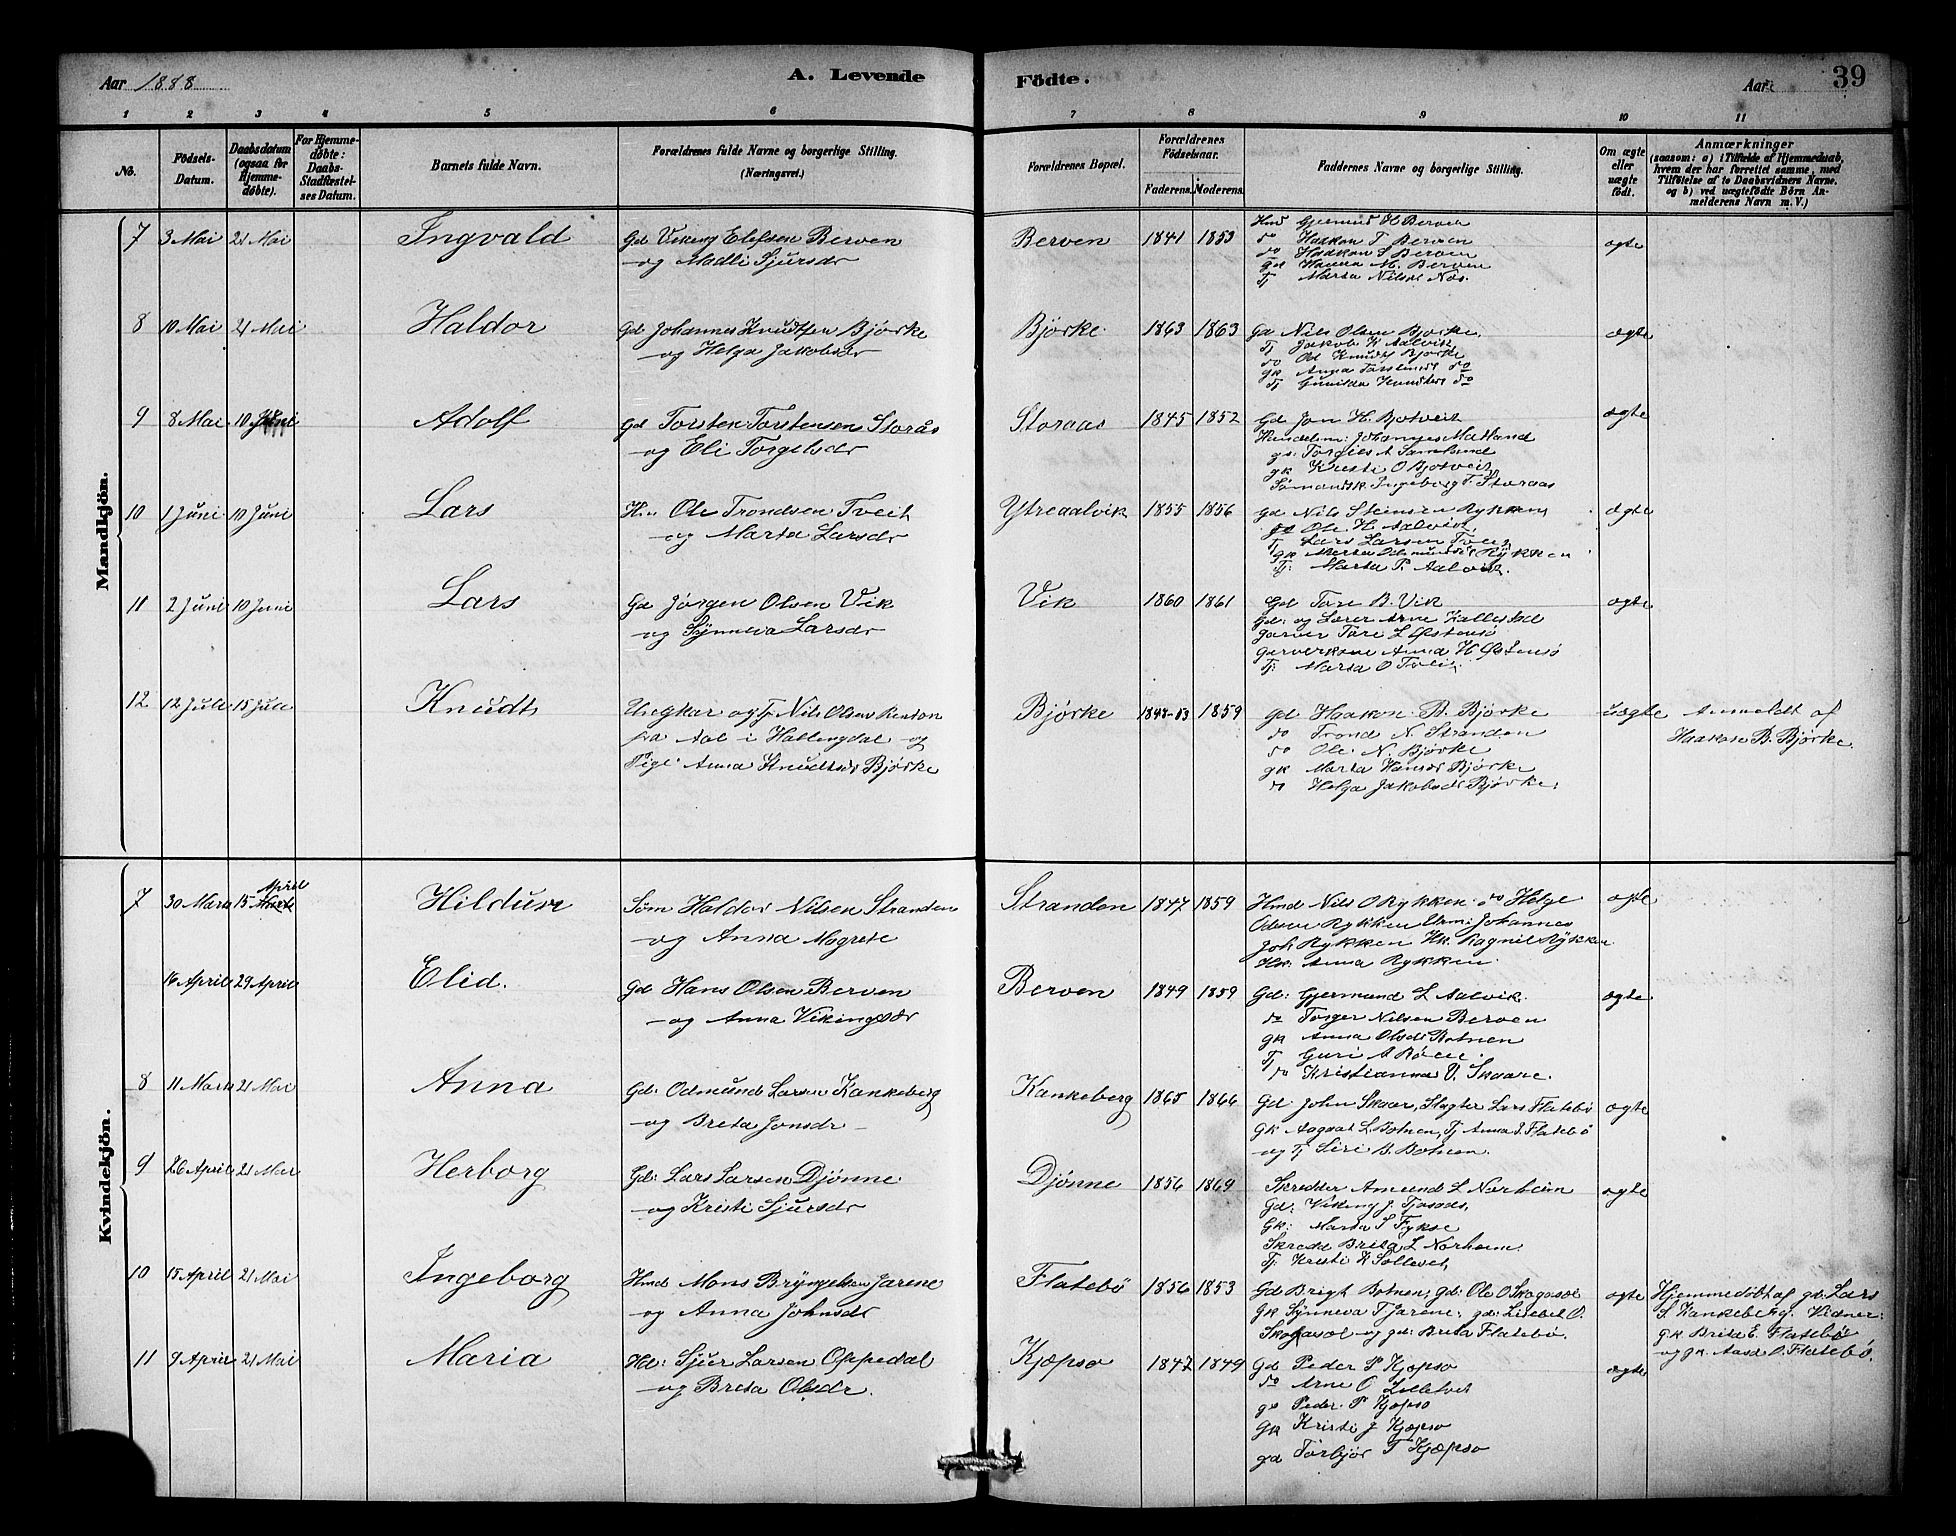 Aar 1888
A. Levende
Födte.
Aar
39
1 2 3 4 5 6 7 8 9 10 11
No.
Födsels-
Datum.
Daabsdatum
(ogsaa for
Hjemme-
døbte).
For Hjemme-
døbte:
Daabs-
Stadfæstel-
ses Datum.
Barnets fulde Navn.
Forældrenes fulde Navne og borgerlige Stilling.
(Næringsvei.)
Forældrenes Bopæl.
Forældrenes
Födselsaar.
Faderens. Moderens.
Faddernes Navne og borgerlige Stilling.
Om ægte
eller
uægte
født.
Anmærkninger
(saasom: a) i Tilfælde af Hjemmedaab,
hvem der har forrettet samme, med
Tilføielse af to Daabsvidners Navne.
og b) ved uægtefødte Börn An-
melderens Navn m. V.)
Mandkjön.
7 3 Mai 21 Mai Ingvald Gd Viking Elefsen Berven
og Madli Sjursdr
Berven 1841 1853 Hmd Gjermund H Berven
do Haakon T Berven
do Haakon S Berven
gd Hanna M. Berven
Tj Marta Nilsdr Nes.
ægte
8 10 Mai 21 Mai Haldor Gd Johannes Knudtsen Bjørke
og Helga Jakobsdr
Bjørke 1863 1863 Gd Nils Olsen Bjørke.
Tj Jakob K Aalvik
do Od Knudts Bjørke
gk Anna Torstensd do
Tj Gunilda Knudtsd do
ægte
9 8 Mai 10 Juni Adolf Gd Torsten Torstensen Storås
og Eli Torgelsdr
Storaas 1845 1852 Gd Jon H. Botveit
Handelsm: Johannes Matland
gd: Torgils A Samlund
gk Kristi O Bjotveit
Sømandsk. Ingeborg T. Storaas
ægte
10 1 Juni 10 Juni Lars H. Ole Trondsen Tveit
og Marta Larsdr
Ytreaalvik 1855 1856 Gd Nils Steinsen Rykken
do Ole H. Aalvik
Tj Lars Larsen Tveit
gk Marta Odmundsd Rykken
Tj: Marta P. Aalvik.
ægte
11 2 Juni 10 Juni Lars Gd Jørgen Olsen Vik
og Synneva Larsdr
Vik 1860 1861 Gd Tore B. Vik
Gd: og Lærer Arne Kallestad
garver Tore L Østensø
garverkone Anna H Østensø
Tj: Marta O Tveit.
ægte
12 12 Juli 15 Juli Knudt Ungkar og Tj Nils Olsen Renton
fra Aal i Hallingdal og
Pige Anna Knudtsdr Bjørke
Bjørke 1848-53 1859 gd Haakon B. Bjørke
do Trond N. Stranden
do Ole N. Bjørke
gk Marta Hansdr Bjørke
do Helga Jakobsdr Bjørke.
Uægte
Anmeldt af
Haakon B. Bjørke.
Kvindekjön.
7 30 Marts 15 April Marts Hildur Søm Haldor Nilsen Stranden
og Anna Magrete
Stranden 1847 1859 Hmd Nils O Rykken do Helge
Odsen Rykken Urm: Johannes
Joh Rykken Hk. Ragnil Rykken
Hk: Anna Rykken.
ægte
16 April 29 April Elid. Gd Hans Olsen Berven
og Anna Vikingsdr
Berven 1849 1859 Gd: Gjermund L Aalvik.
do Torger Nilsen Berven
gk Anna Olsdr Botnen
Tj Guri A Røen.
do Kristianna V. Skaare.
ægte
8 11 Marts 21 Mai Anna Gd: Odmund Larsen Kankeberg
og Breta Jonsdr
Kankeberg 1865 1866 Gd John Skaar, Slagter Lars Flatebø
Gk Aagaat L Botnen, Tj Anna L Flatebø
og Tj Siri B. Botnen.
ægte
9 26 April 21 Mai Herborg Gd: Lars Larsen Djønne.
og Kristi Sjursdr
Djønne 1856 1869 Skrædder Amund L Norheim
Gd: Viking J. Tjosaas,
Gk: Marta S Fykse
Skrædd Brita L Norheim.
Tj Kristi K Solleveit,
ægte
10 15 April 21 Mai Ingeborg Hmd Mons Bryngelsen Jarene
og Anna Johnsdr
Flatebø 1856 1853 Gd Brigt Botnen, gd: Ole O Skogasæl
gk Synneva T Jarene, gd: Lisbet O.
Skogasæl og gd: Breta Flatebø.
ægte
Hjemmedøbt af gd: Lars
S. Kankeberg. Vidner:
gk Brita E. Flatebø
og gk. Aasa O. Flatebø.
11 9 April 21 Mai Maria Hd: Sjur Larsen Oppedal
og Breta Olsdr.
Kjæpsø 1847 1849 Gd Peder P Kjæpsø
do Arne O Lilletvet
gd Peder P Kjæpsø
Gk Kristi J Kjæpsø
gd Torbjør T Kjæpsø
ægte